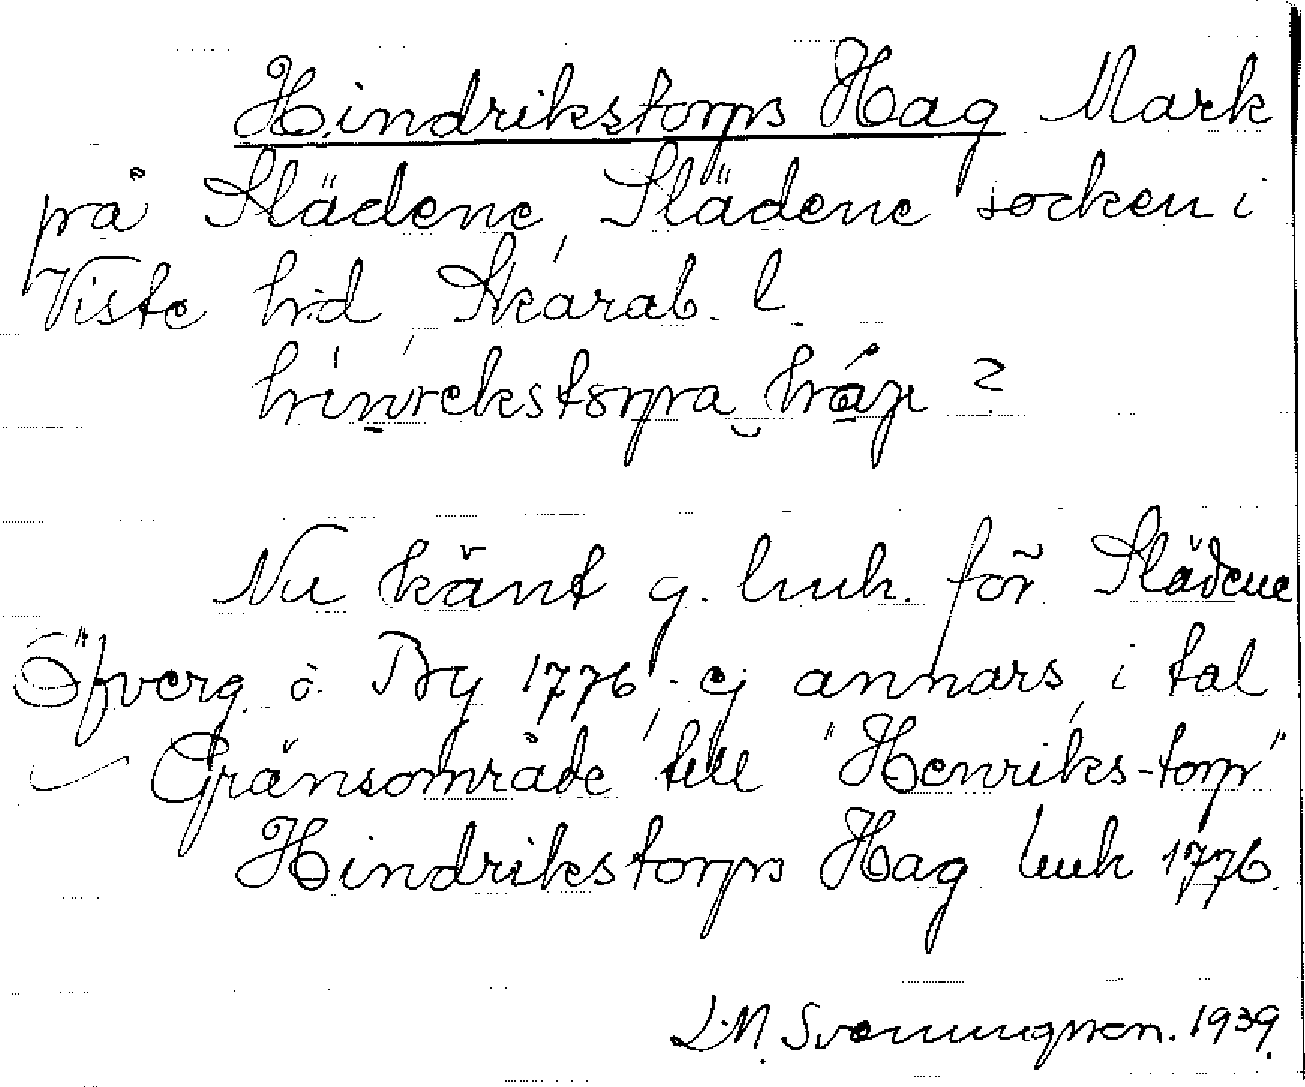 Hindrikstorps Hag Mark
på Slädene, Slädene socken i
Viste hd, Skarab. l.
hinrekstorpa háγ 2
Nu känt g. luuh. för Slädene
Öfverg. o. By 1776, ej annars, i tal
Gränsområde till "Henriks-torp"
Hindrikstorps Hag luuh 1776.
L.M. Svenungsson. 1939.